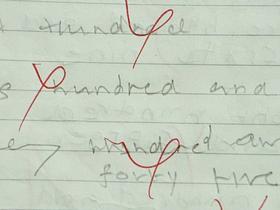 hundred
hundred and
hundred
forty five